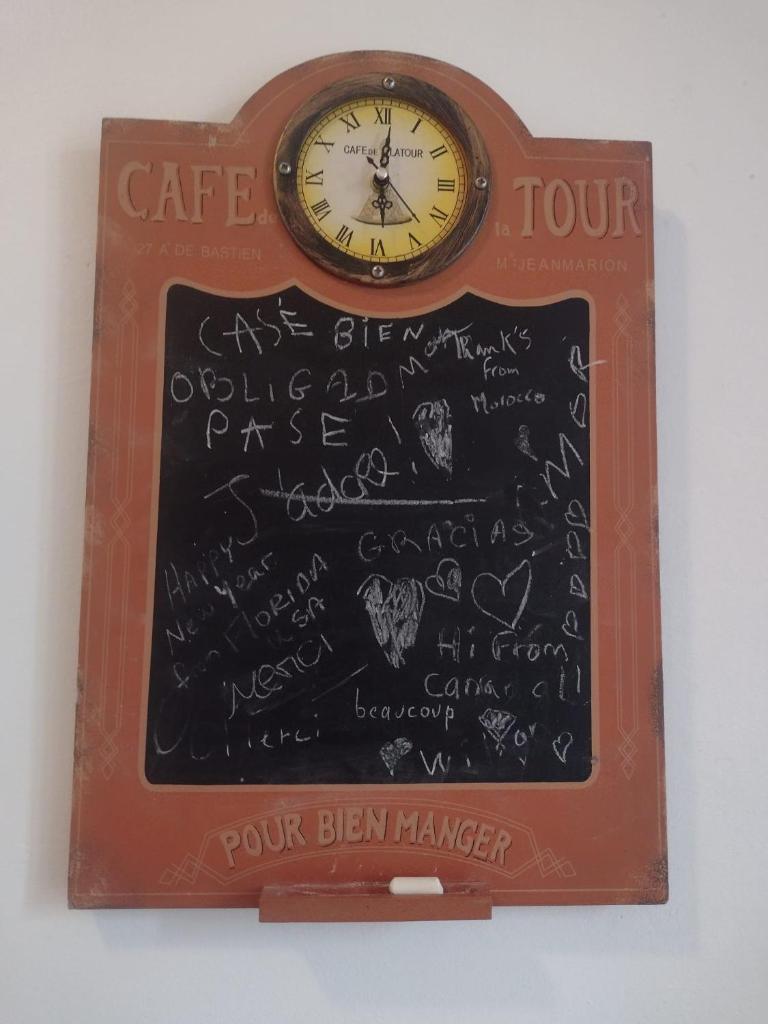 XII I II III IV V VI VII VIII IX X XI
CAFE DE LATOUR
CAFE de la TOUR
27 A° DE BASTIEN
Mᴿ JEANMARION
CASÉ BIEN
Thank's
from
Morocco
OBLIGAD
PASE
J'adore
GRACIAS
HAPPY
New Year
from FLORIDA
USA
Merci
Hi From
Canada!!
beaucoup
Merci
POUR BIEN MANGER